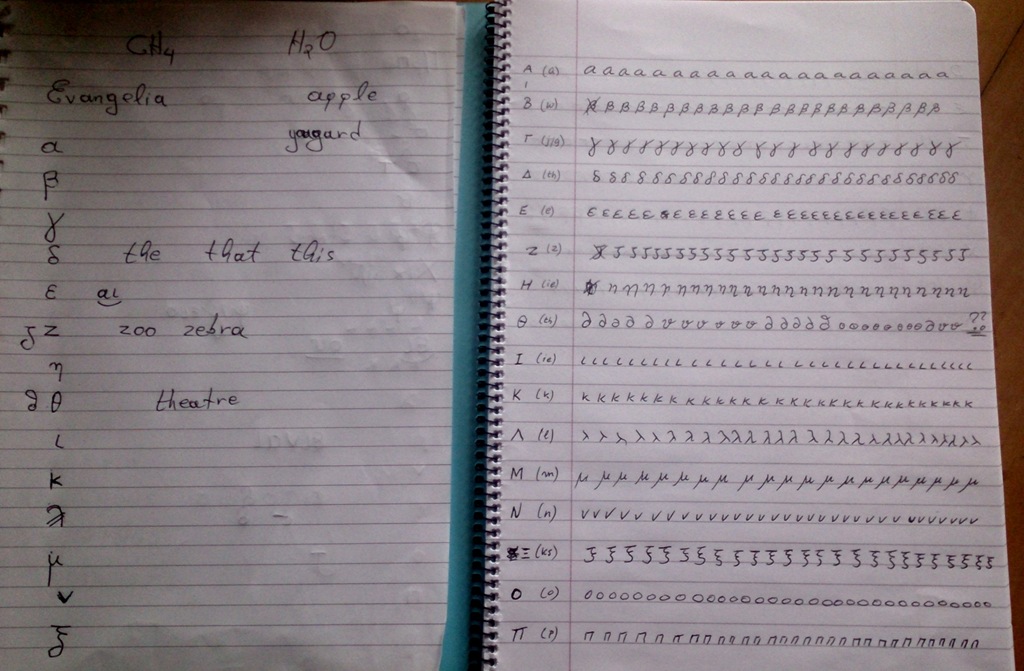 CH₄ H₂O
Evangelia apple
α
β
γ
δ the that this
ε αι
ζ z zoo zebra
η
θ theatre
ι
κ
λ
μ
ν
ξ
A (a) α α α α α α α α α α α α α α α α α α α α
B (w) β β β β β β β β β β β β β β β β β β β β β β β
Γ γ γ γ γ γ γ γ γ γ γ γ γ γ γ γ γ γ γ γ γ γ γ γ
Δ (th) δ δ δ δ δ δ δ δ δ δ δ δ δ δ δ δ δ δ δ δ δ δ δ δ δ δ
E (e) ε ε ε ε ε ε ε ε ε ε ε ε ε ε ε ε ε ε ε ε ε ε ε ε
Z (z) ζ ζ ζ ζ ζ ζ ζ ζ ζ ζ ζ ζ ζ ζ ζ ζ ζ ζ ζ ζ ζ ζ ζ ζ
H (ie) η η η η η η η η η η η η η η η η η η η η η η η
Θ (th) ϑ ϑ ϑ ϑ ϑ ϑ ϑ ϑ ϑ ϑ ϑ ϑ ϑ ϑ ϑ ϑ θ θ θ θ θ θ θ ϑ ϑ ϑ ??
I (ie) ι ι ι ι ι ι ι ι ι ι ι ι ι ι ι ι ι ι ι ι ι ι ι ι ι ι
K (k) κ κ κ κ κ κ κ κ κ κ κ κ κ κ κ κ κ κ κ κ κ κ κ κ κ κ
Λ (l) λ λ λ λ λ λ λ λ λ λ λ λ λ λ λ λ λ λ λ λ λ λ λ λ λ
M (m) μ μ μ μ μ μ μ μ μ μ μ μ μ μ μ μ μ μ μ μ
N (n) ν ν ν ν ν ν ν ν ν ν ν ν ν ν ν ν ν ν ν ν ν ν ν ν ν ν ν ν
Ξ (ks) ξ ξ ξ ξ ξ ξ ξ ξ ξ ξ ξ ξ ξ ξ ξ ξ ξ ξ ξ ξ ξ ξ ξ ξ ξ ξ
O (o) ο ο ο ο ο ο ο ο ο ο ο ο ο ο ο ο ο ο ο ο ο ο ο ο ο ο ο ο ο ο
Π (p) π π π π π π π π π π π π π π π π π π π π π π π π π